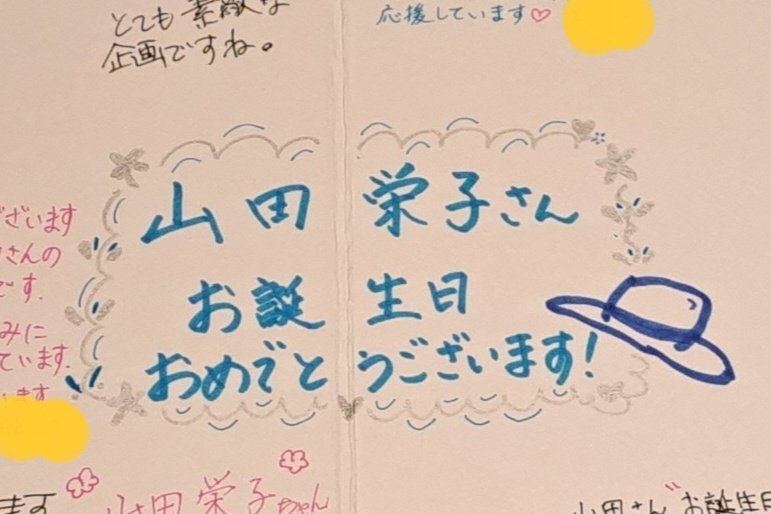 とても素敵な
企画ですね。
応援しています♡
山田 栄子さん
お誕生日
おめでとうございます!
ざいます
さんの
です.
みに
ています.
ます
山田栄子ちゃん
山田さん お誕生日